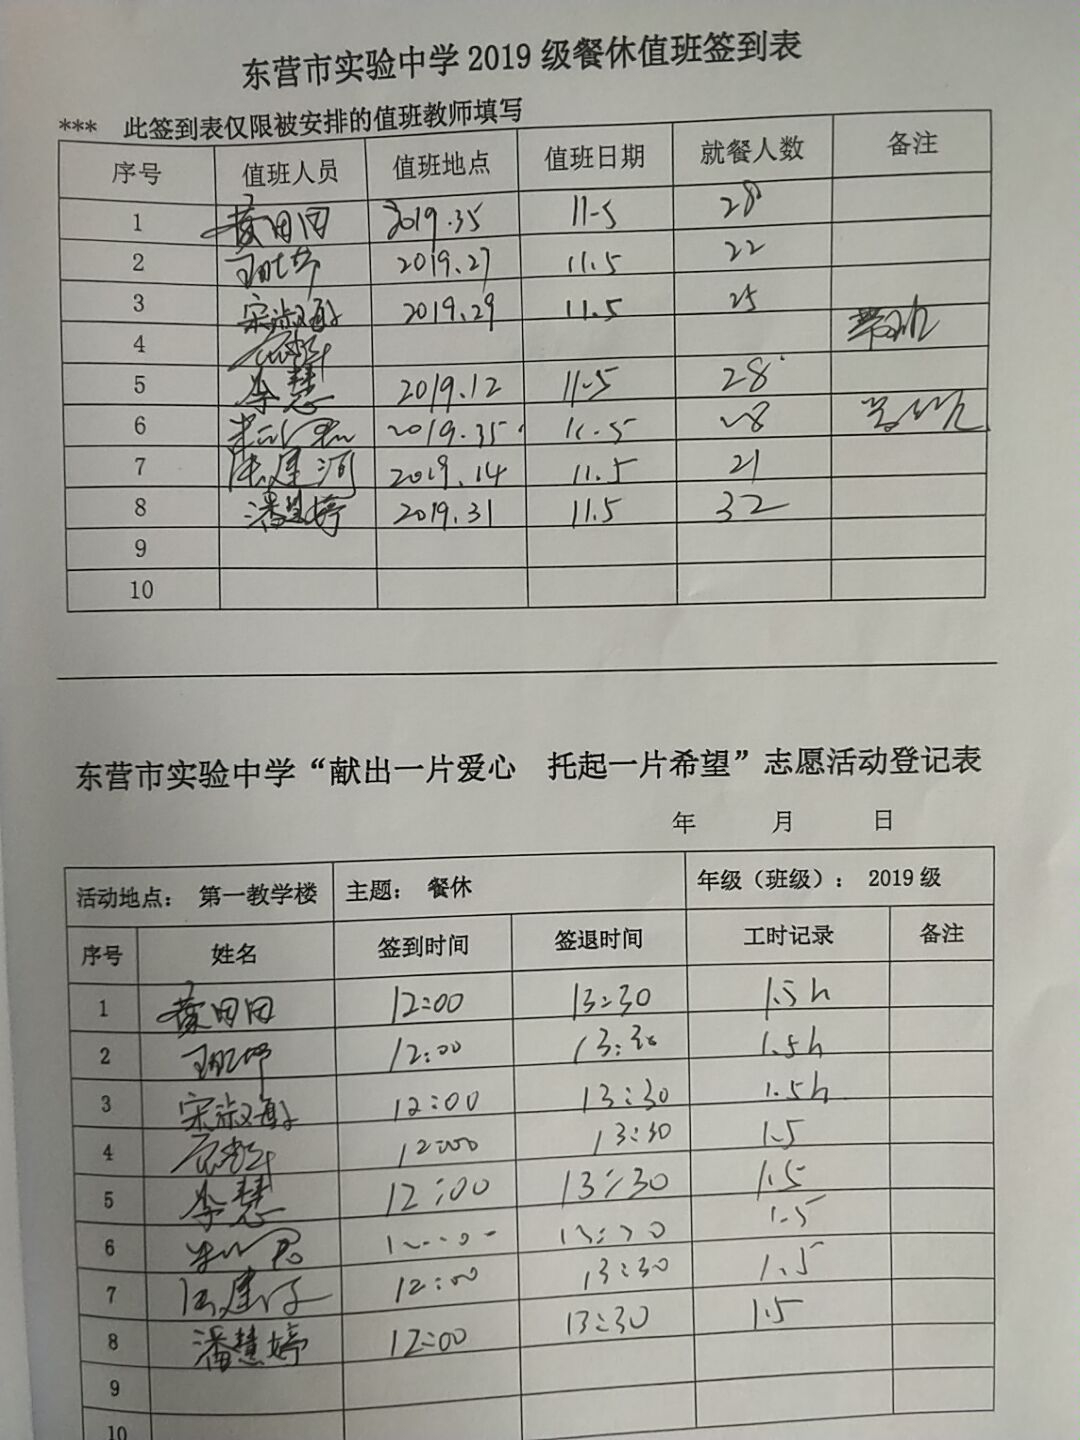 东营市实验中学2019级餐休值班签到表
*** 此签到表仅限被安排的值班教师填写
序号 值班人员 值班地点 值班日期 就餐人数 备注
1 田田 2019.35 11-5 28
2 2019.27 11.5 22
3 宋淑敏 2019.29 11.5 25
4 带班
5 李慧 2019.12 11-5 28
6 2019.35 11.5 28
7 建河 2019.14 11.5 21
8 潘慧婷 2019.31 11.5 32
9
10
东营市实验中学“献出一片爱心 托起一片希望”志愿活动登记表
年 月 日
活动地点: 第一教学楼 主题: 餐休 年级(班级): 2019级
序号 姓名 签到时间 签退时间 工时记录 备注
1 田田 12:00 13:30 1.5h
2 12:00 13:30 1.5h
3 宋淑敏 12:00 13:30 1.5h
4 12:00 13:30 1.5
5 李慧 12:00 13:30 1.5
6 13:30 1.5
7 12:00 13:30 1.5
8 潘慧婷 12:00 13:30 1.5
9
10